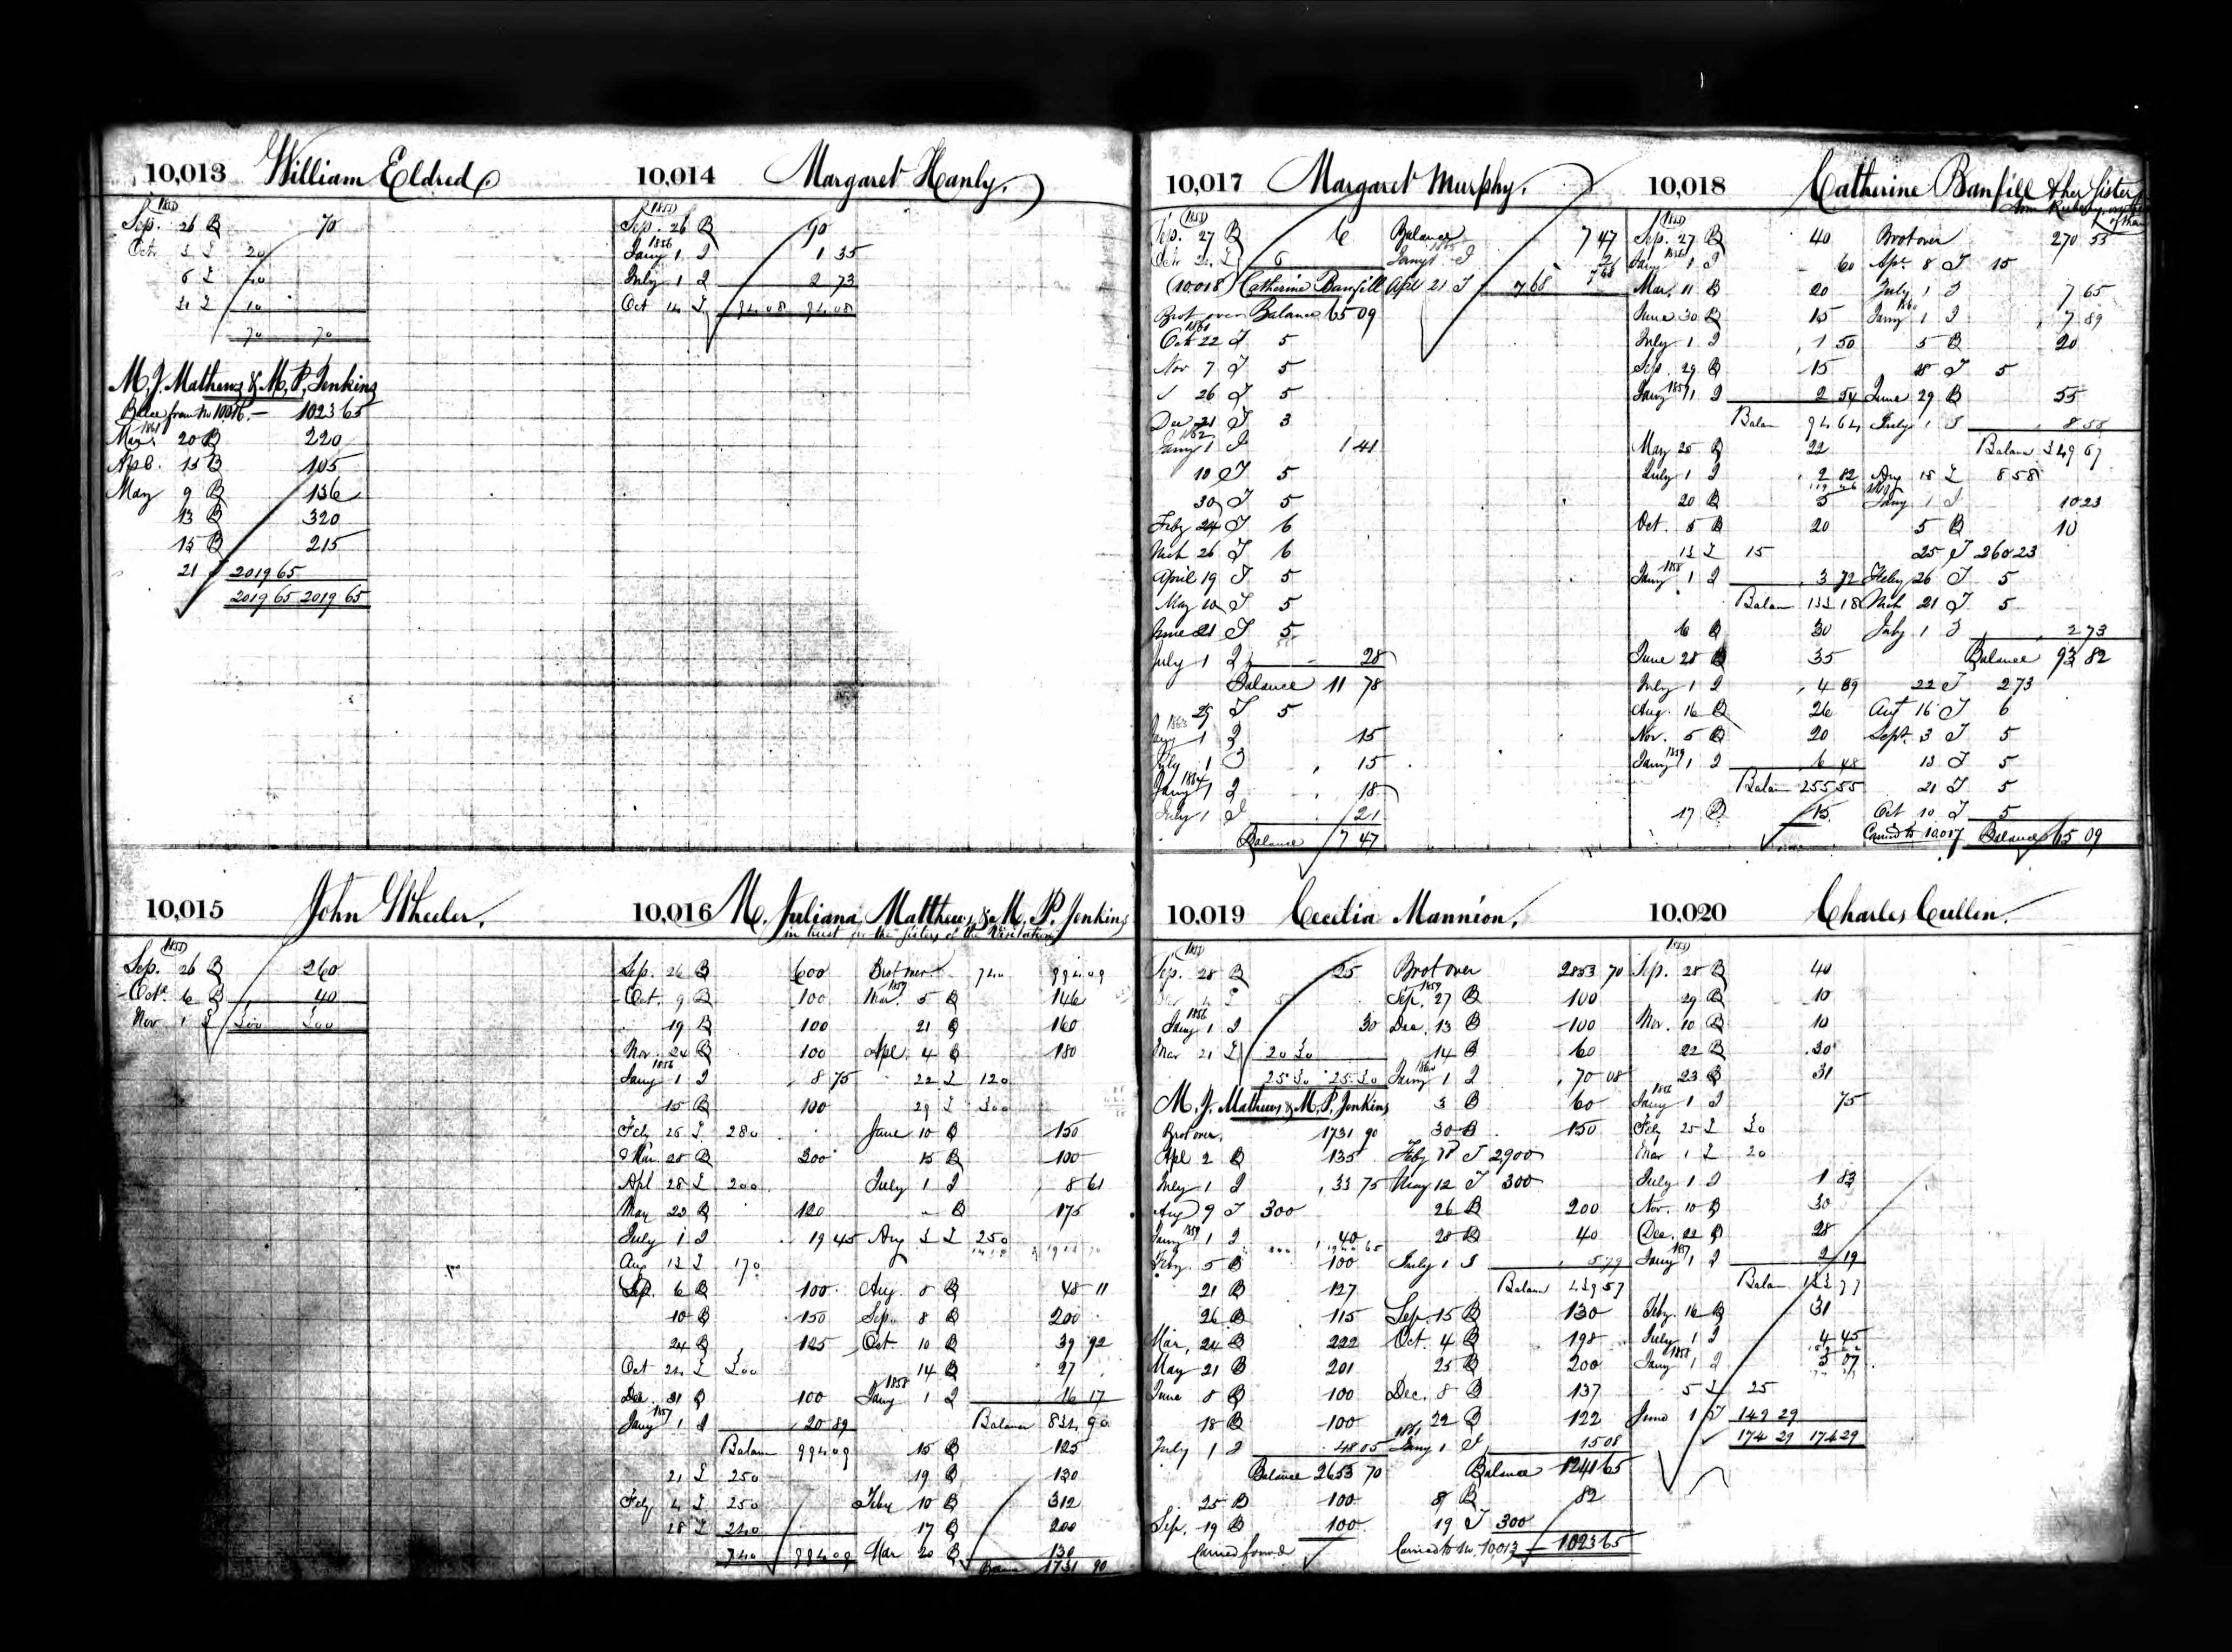 10,013 William Eldred
1855
Sep. 26 B 70
Oct 3 L 20
6 L 40
21 L 10
70 70
M. J. Mathews & M. P. Jenkins
Balce from No 10016.— 1023 65
1861
Mar. 20 B 220
Apl. 13 B 105
May 9 B 136
13 B 320
15 B 215
21 2019 65
2019 65 2019 65
10,014 Margaret Hanly.
1855
Sep. 26 B 90
1856
Jany 1 I 1 35
July 1 I 2 73
Oct 14 L 94 08 94 08
10,015 John Wheeler.
1855
Sep. 26 B 260
Oct. 6 B 40
Nov 1 L 300 300
10,016 M. Juliana Matthews & M. P. Jenkins
in trust for the Sisters of the Visitation
Sep. 26 B 600
Oct. 9 B 100
19 B 100
Nov. 24 B 100
1856
Jany 1 I 8 75
15 B 100
Feby 25 L 280
Mar. 28 B 300
Apl 28 L 200
May 22 B 120
July 1 I 19 45
Aug 13 L 170
Sep. 6 B 100
10 B 150
24 B 125
Oct 24 L 300
Dec. 31 B 100
1857
Jany 1 I 20 89
Balan 994 09
21 L 250
Feby 4 L 250
28 L 240
740 994 09
Brot over 740 994 09
Mar. 5 B 146
21 B 160
Apl. 4 B 180
22 L 120
29 L 300
June 10 B 150
15 B 100
July 1 I 8 61
" B 175
Aug 3 L 250
Aug. 8 B 48 11
Sep. 8 B 200
Oct. 10 B 39 92
14 B 27
1858
Jany 1 I 16 17
Balance 834 90
15 B 125
19 B 130
Feby 10 B 312
17 B 200
Mar 20 B 130
Balan 1731 90
10,017 Margaret Murphy.
1855
Sep. 27 B 6
Oct 24 L 6
(10018) Catherine Banfill
Brot over Balance 65 09
1861
Oct 22 T 5
Nov 7 T 5
" 26 T 5
Dec 21 T 3
1862
Jany 1 I 1 41
10 T 5
30 T 5
Feby 24 T 6
Mch 26 T 6
April 19 T 5
May 10 T 5
June 21 T 5
July 1 I 28
Balance 11 78
25 T 5
1863
Jany 1 I 15
July 1 I 15
1864
Jany 1 I 18
July 1 I 21
Balance 7 47
Balance 7 47
Jany 1 I 21
7 68
Apl 21 T 7 68
10,018 Catherine Banfill & her Sister
1855
Sep. 27 B 40
1856
Jany 1 I 60
Mar. 11 B 20
June 30 B 15
July 1 I 1 50
Sep. 29 B 15
1857
Jany 1 I 2 54
Balan 94 64
May 25 B 22
July 1 I 2 82
20 B 5
Oct. 5 B 20
13 L 15
1858
Jany 1 I 3 72
Balan 133 18
16 B 30
June 28 B 35
July 1 I 4 89
Aug. 16 B 26
Nov. 5 B 20
1859
Jany 1 I 6 48
Balan 255 55
17 B 15
Brot over 270 55
Apr. 8 T 15
July 1 I 7 65
1860
Jany 1 I 7 89
5 B 20
18 T 5
June 29 B 55
July 1 I 8 58
Balan 349 67
Aug 15 L 8 58
Jany 1 I 10 23
5 B 10
25 T 260 23
Feby 26 T 5
Mch 21 T 5
July 1 I 2 73
Balance 93 82
22 T 2 73
Aug 16 T 6
Sept. 3 T 5
13 T 5
21 T 5
Oct 10 T 5
Carried to 10,017 Balance 65 09
10,019 Cecilia Mannion.
1855
Sep. 28 B 25
1856
Jany 1 I 30
Mar 21 L 20 30
25 30 25 30
M. J. Mathews & M. P. Jenkins
Brot over. 1731 90
Apl 2 B 135
July 1 I 33 75
Aug 9 T 300
1859
Jany 1 I 40
Feby. 5 B 100
21 B 127
26 B 115
Mar. 24 B 222
May 21 B 201
June 8 B 100
18 B 100
July 1 I 48 05
Balance 2653 70
25 B 100
Sep. 19 B 100
Carried forward
Brot over 2853 70
1859
Sep. 27 B 100
Dec. 13 B 100
14 B 60
1860
Jany 1 I 70 08
3 B 60
30 B 150
Feby 18 T 2900
May 12 T 300
26 B 200
28 B 40
July 1 I 5 79
Balan 439 57
Sep. 15 B 130
Oct. 4 B 198
25 B 200
Dec. 8 B 137
22 B 122
1861
Jany 1 I 15 08
Balance 1241 65
8 B 82
19 T 300
Carried to No. 10,013 1023 65
10,020 Charles Cullen.
1855
Sep. 28 B 40
29 B 10
Nov. 10 B 10
22 B 30
23 B 31
1856
Jany 1 I 75
Feby 25 L 30
Mar 1 L 20
July 1 I 1 83
Nov. 10 B 30
Dec. 22 B 28
1857
Jany 1 I 2 19
Balan 133 77
Feby. 16 B 31
July 1 I 4 45
1858
Jany 1 I 5 07
5 L 25
June 1 T 149 29
174 29 174 29